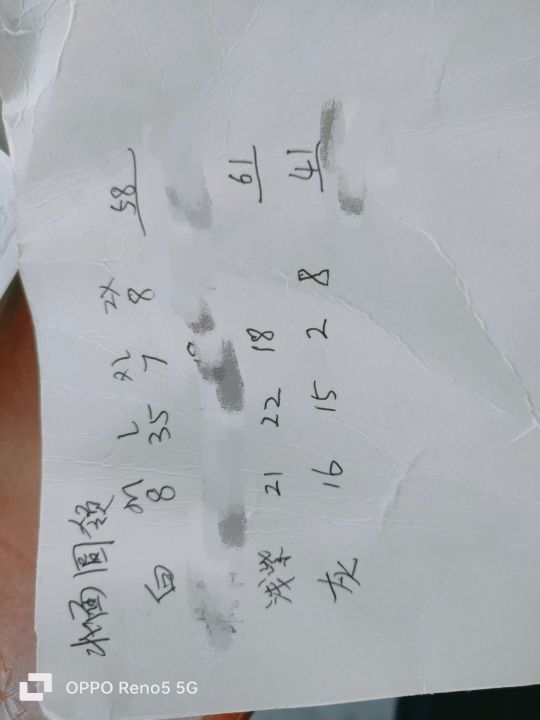 水面圆领
M L XL 2X
白 8 35 7 8 58
浅紫 21 22 18 61
灰 16 15 2 8 41
OPPO Reno5 5G